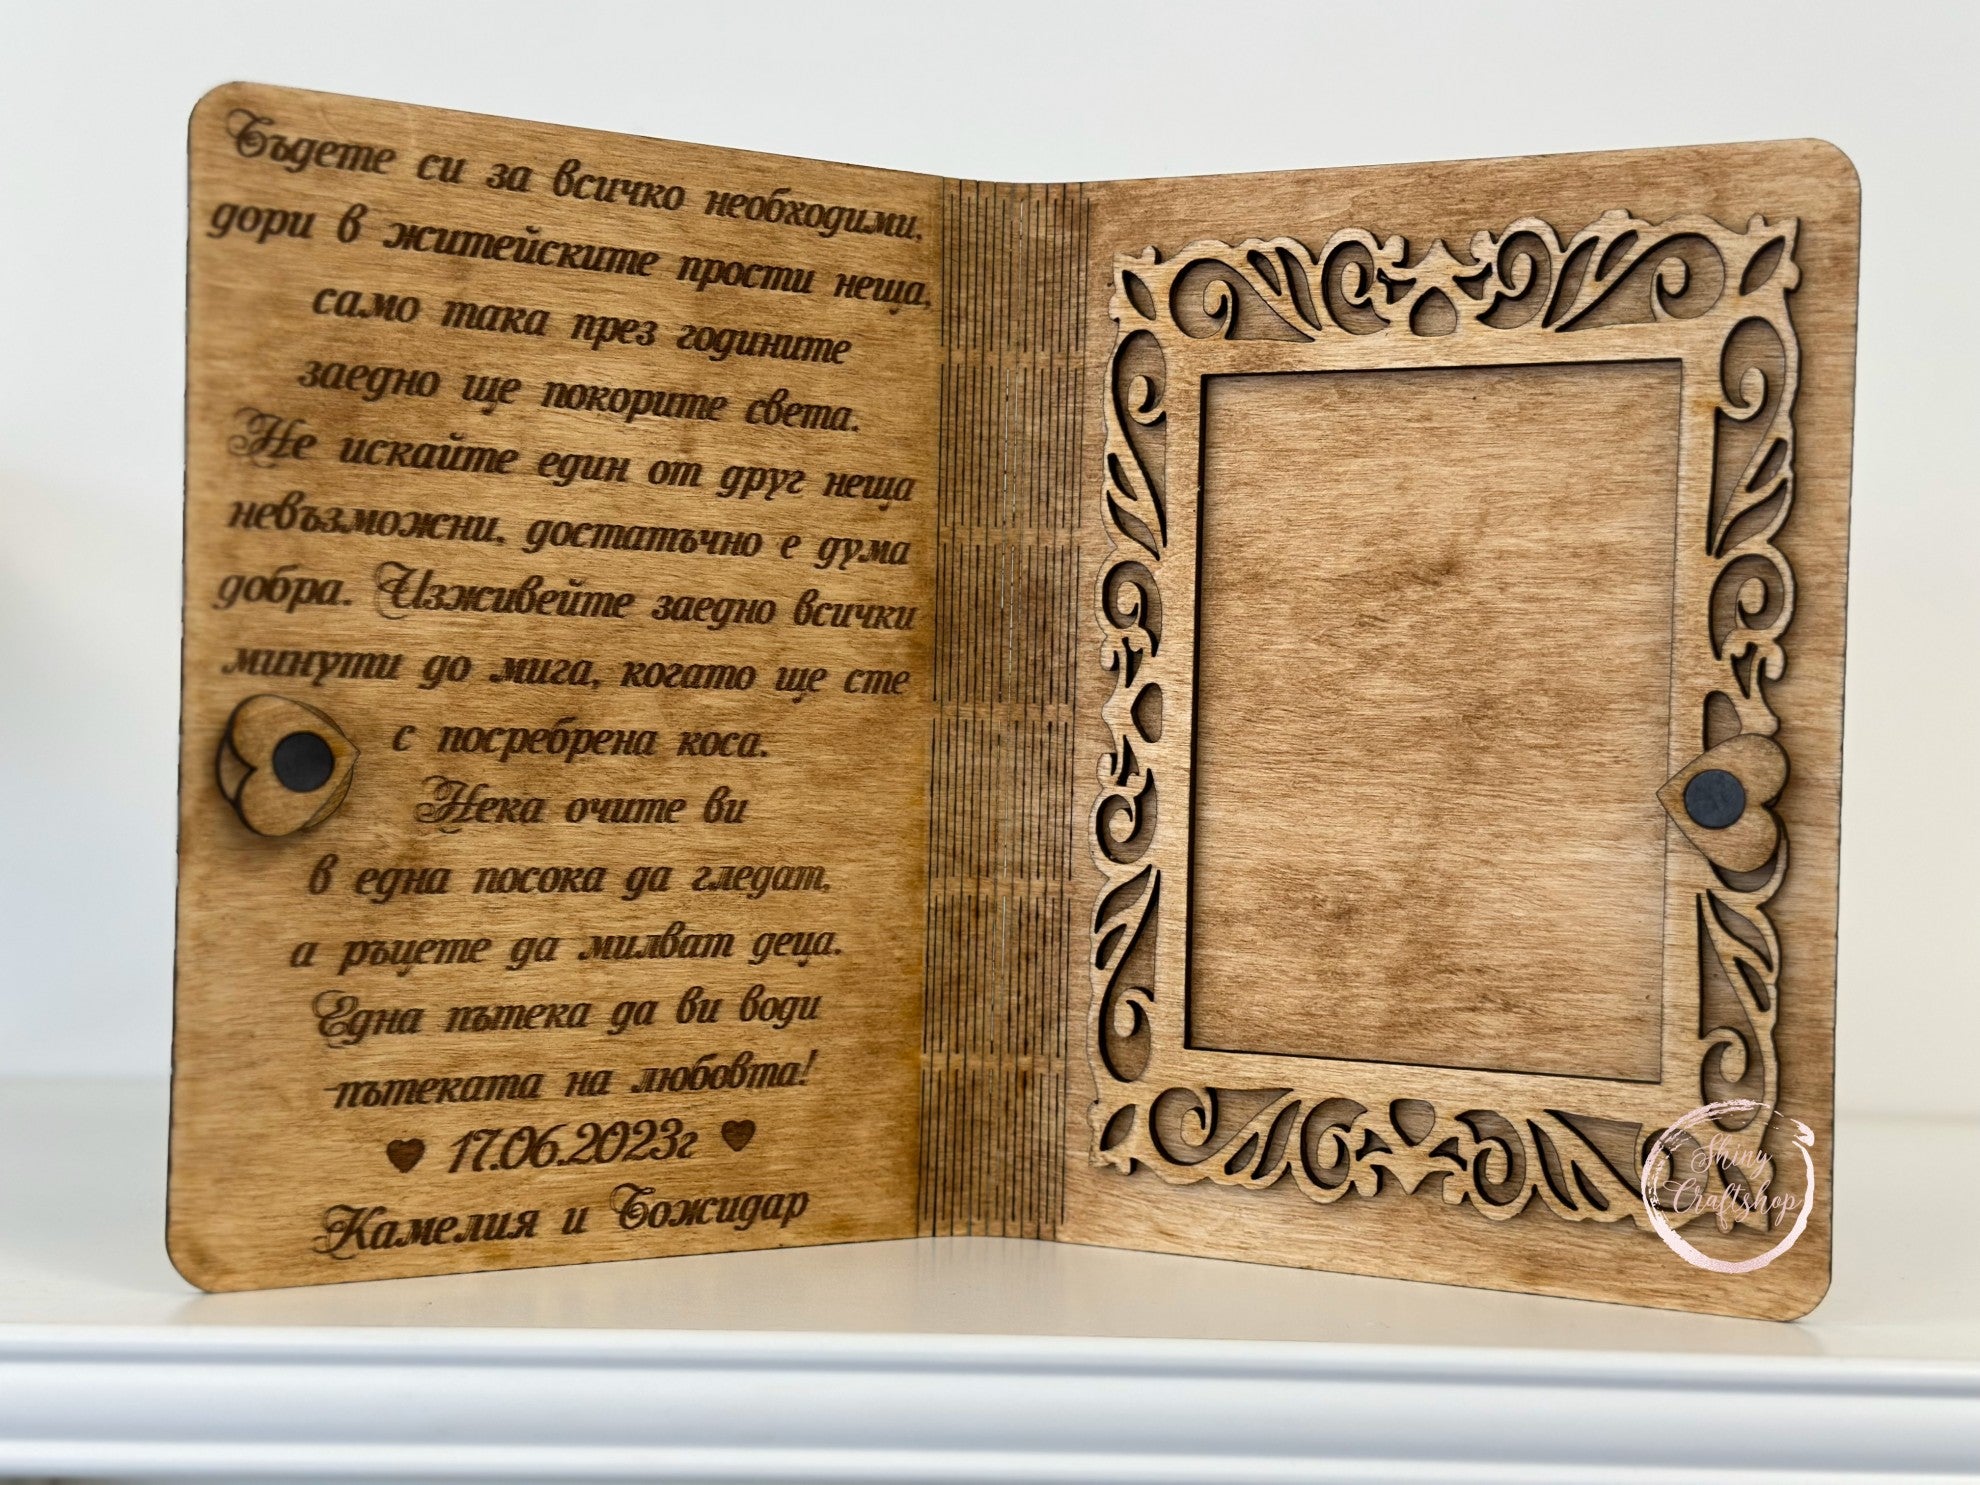 Бъдете си за всичко необходими,
дори в житейските прости неща,
само така през годините
заедно ще покорите света.
Не искайте един от друг неща
невъзможни, достатъчно е дума
добра. Изживейте заедно всички
минути до мига, когато ще сте
с посребрена коса.
Нека очите ви
в една посока да гледат,
а ръцете да милват деца.
Една пътека да ви води
-пътеката на любовта!
♥ 17.06.2023г ♥
Камелия и Божидар
Shiny
Craftshop